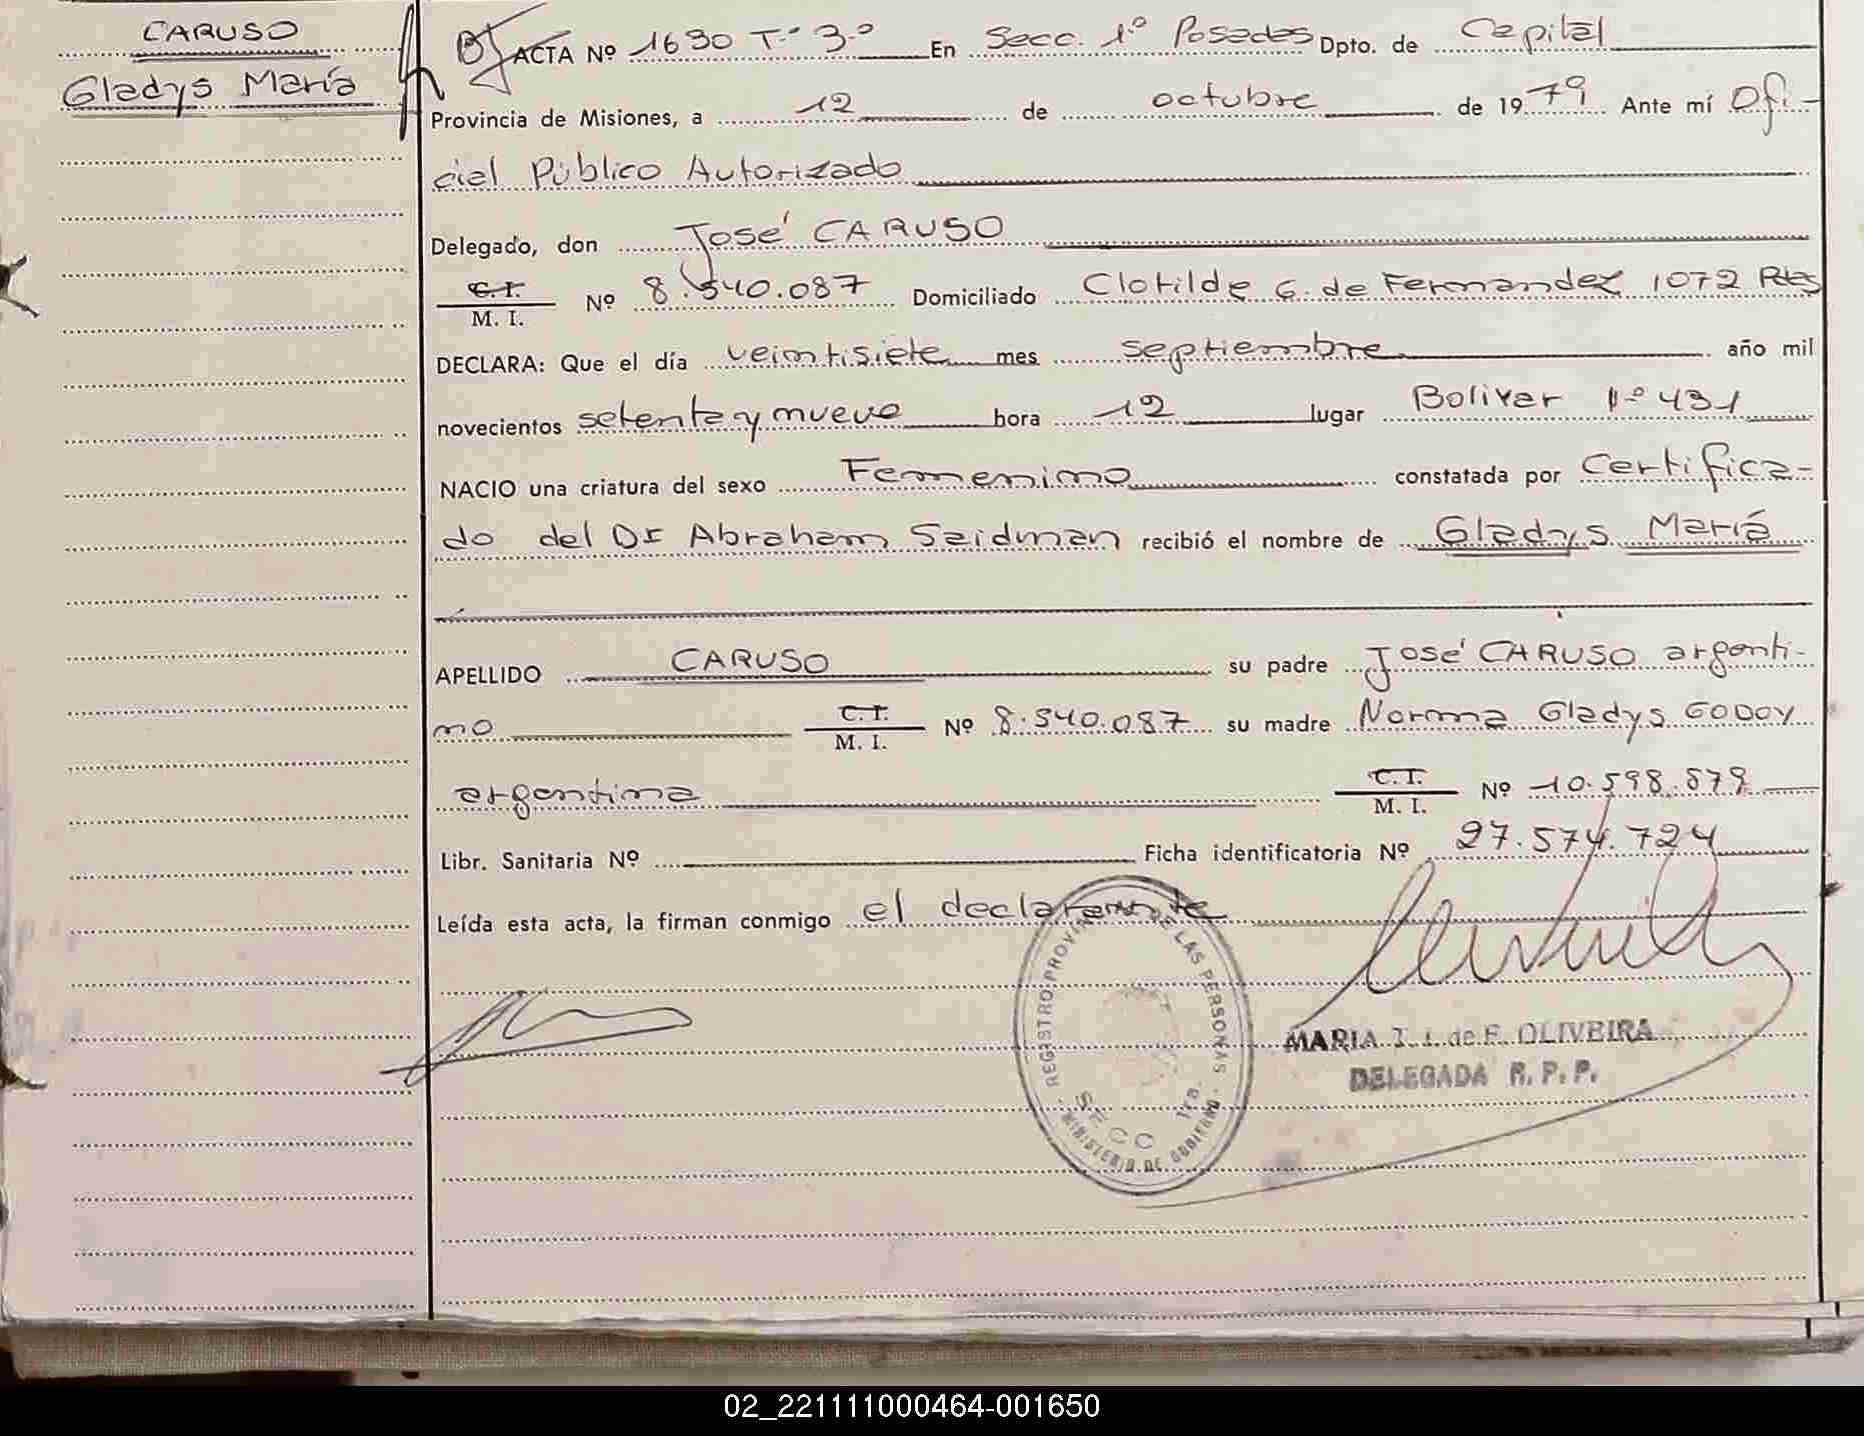 CARUSO
Gladys María
ACTA Nº 1630 Tº 3º En Secc. 1º Posadas Dpto. de Capital
Provincia de Misiones, a 12 de octubre de 1979 Ante mí Ofi-
cial Público Autorizado
Delegado, don José CARUSO
C.I. M. I. Nº 8.540.087 Domiciliado Clotilde G. de Fernandez 1072 Pdas
DECLARA: Que el día veintisiete mes septiembre año mil
novecientos setenta y nueve hora 12 lugar Bolivar Nº 431
NACIO una criatura del sexo Femenino constatada por Certifica-
do del Dr Abraham Saidman recibió el nombre de Gladys María
APELLIDO CARUSO su padre José CARUSO argenti-
no C.I. M. I. Nº 8.540.087 su madre Norma Gladys GODOY
argentina C.I. M. I. Nº 10.598.579
Libr. Sanitaria Nº Ficha identificatoria Nº 27.574.724
Leída esta acta, la firman conmigo el declarante
REGISTRO PROVINCIAL DE LAS PERSONAS
SECC 1ra.
MINISTERIO DE GOBIERNO
MARIA de F. OLIVEIRA
DELEGADA R. P. P.
02_221111000464-001650